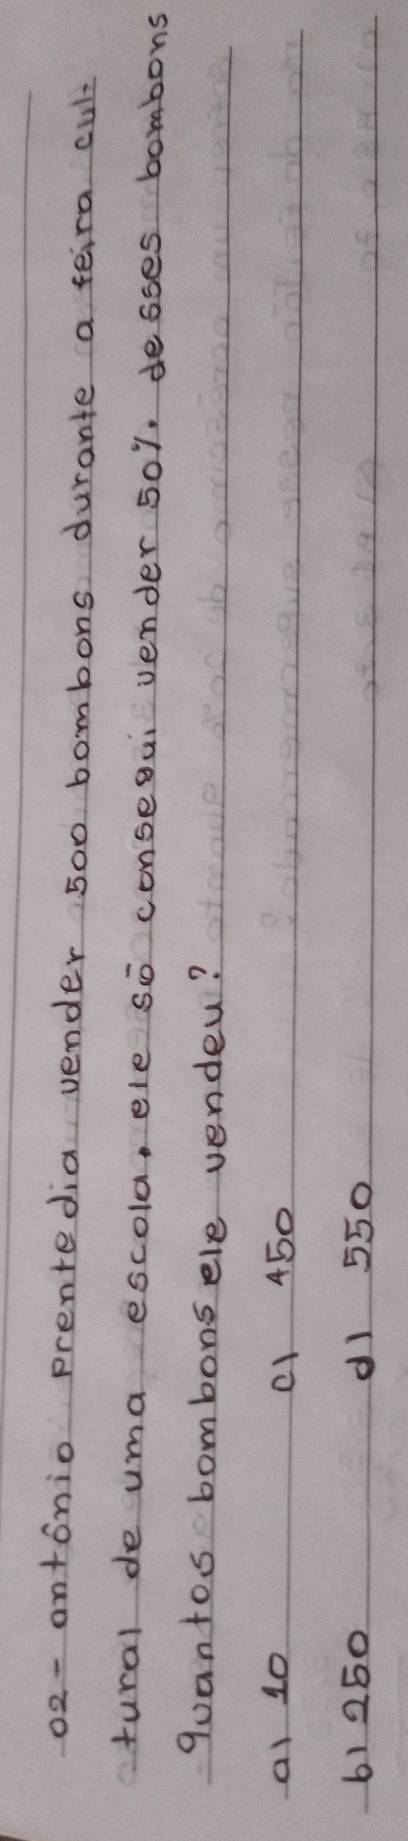 02- antônio prentedia vender 500 bombons durante a feira cul-
tural de uma escola, ele só consegui vender 50% desses bombons
quantos bombons ele vendeu?
a) 10 c) 450
b) 250 d) 550